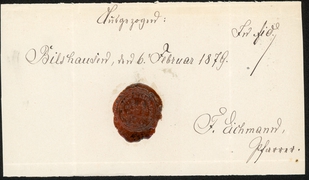 Ausgezogen:
In fid.
Bilshausen, den 6. Februar 1879.
F. Eickmann,
Pfarrer.